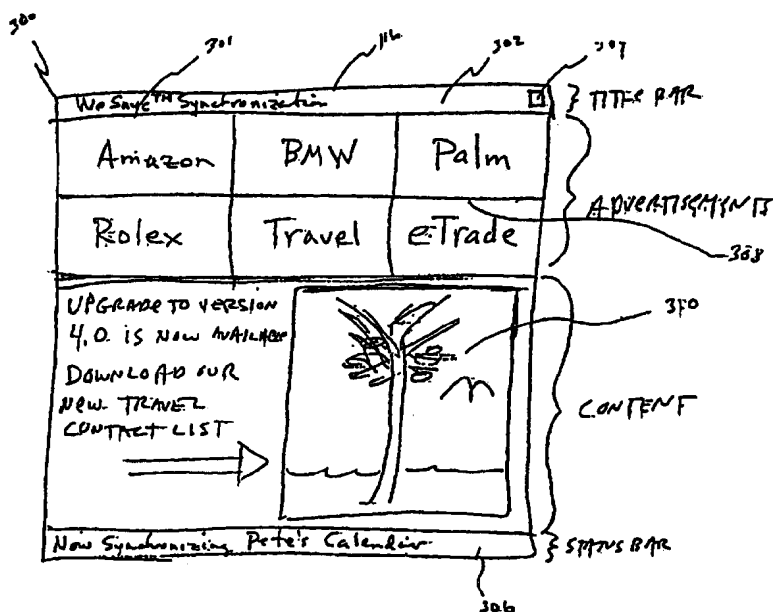 300
301
116
302
304
We Sync™ Synchronization
TITLE BAR
Amazon BMW Palm
ADVERTISEMENTS
Rolex Travel e-Trade
308
UPGRADE TO VERSION
4.0. IS NOW AVAILABLE
310
DOWNLOAD OUR
NEW TRAVEL
CONTACT LIST
CONTENT
Now Synchronizing Pete's Calendar
STATUS BAR
306